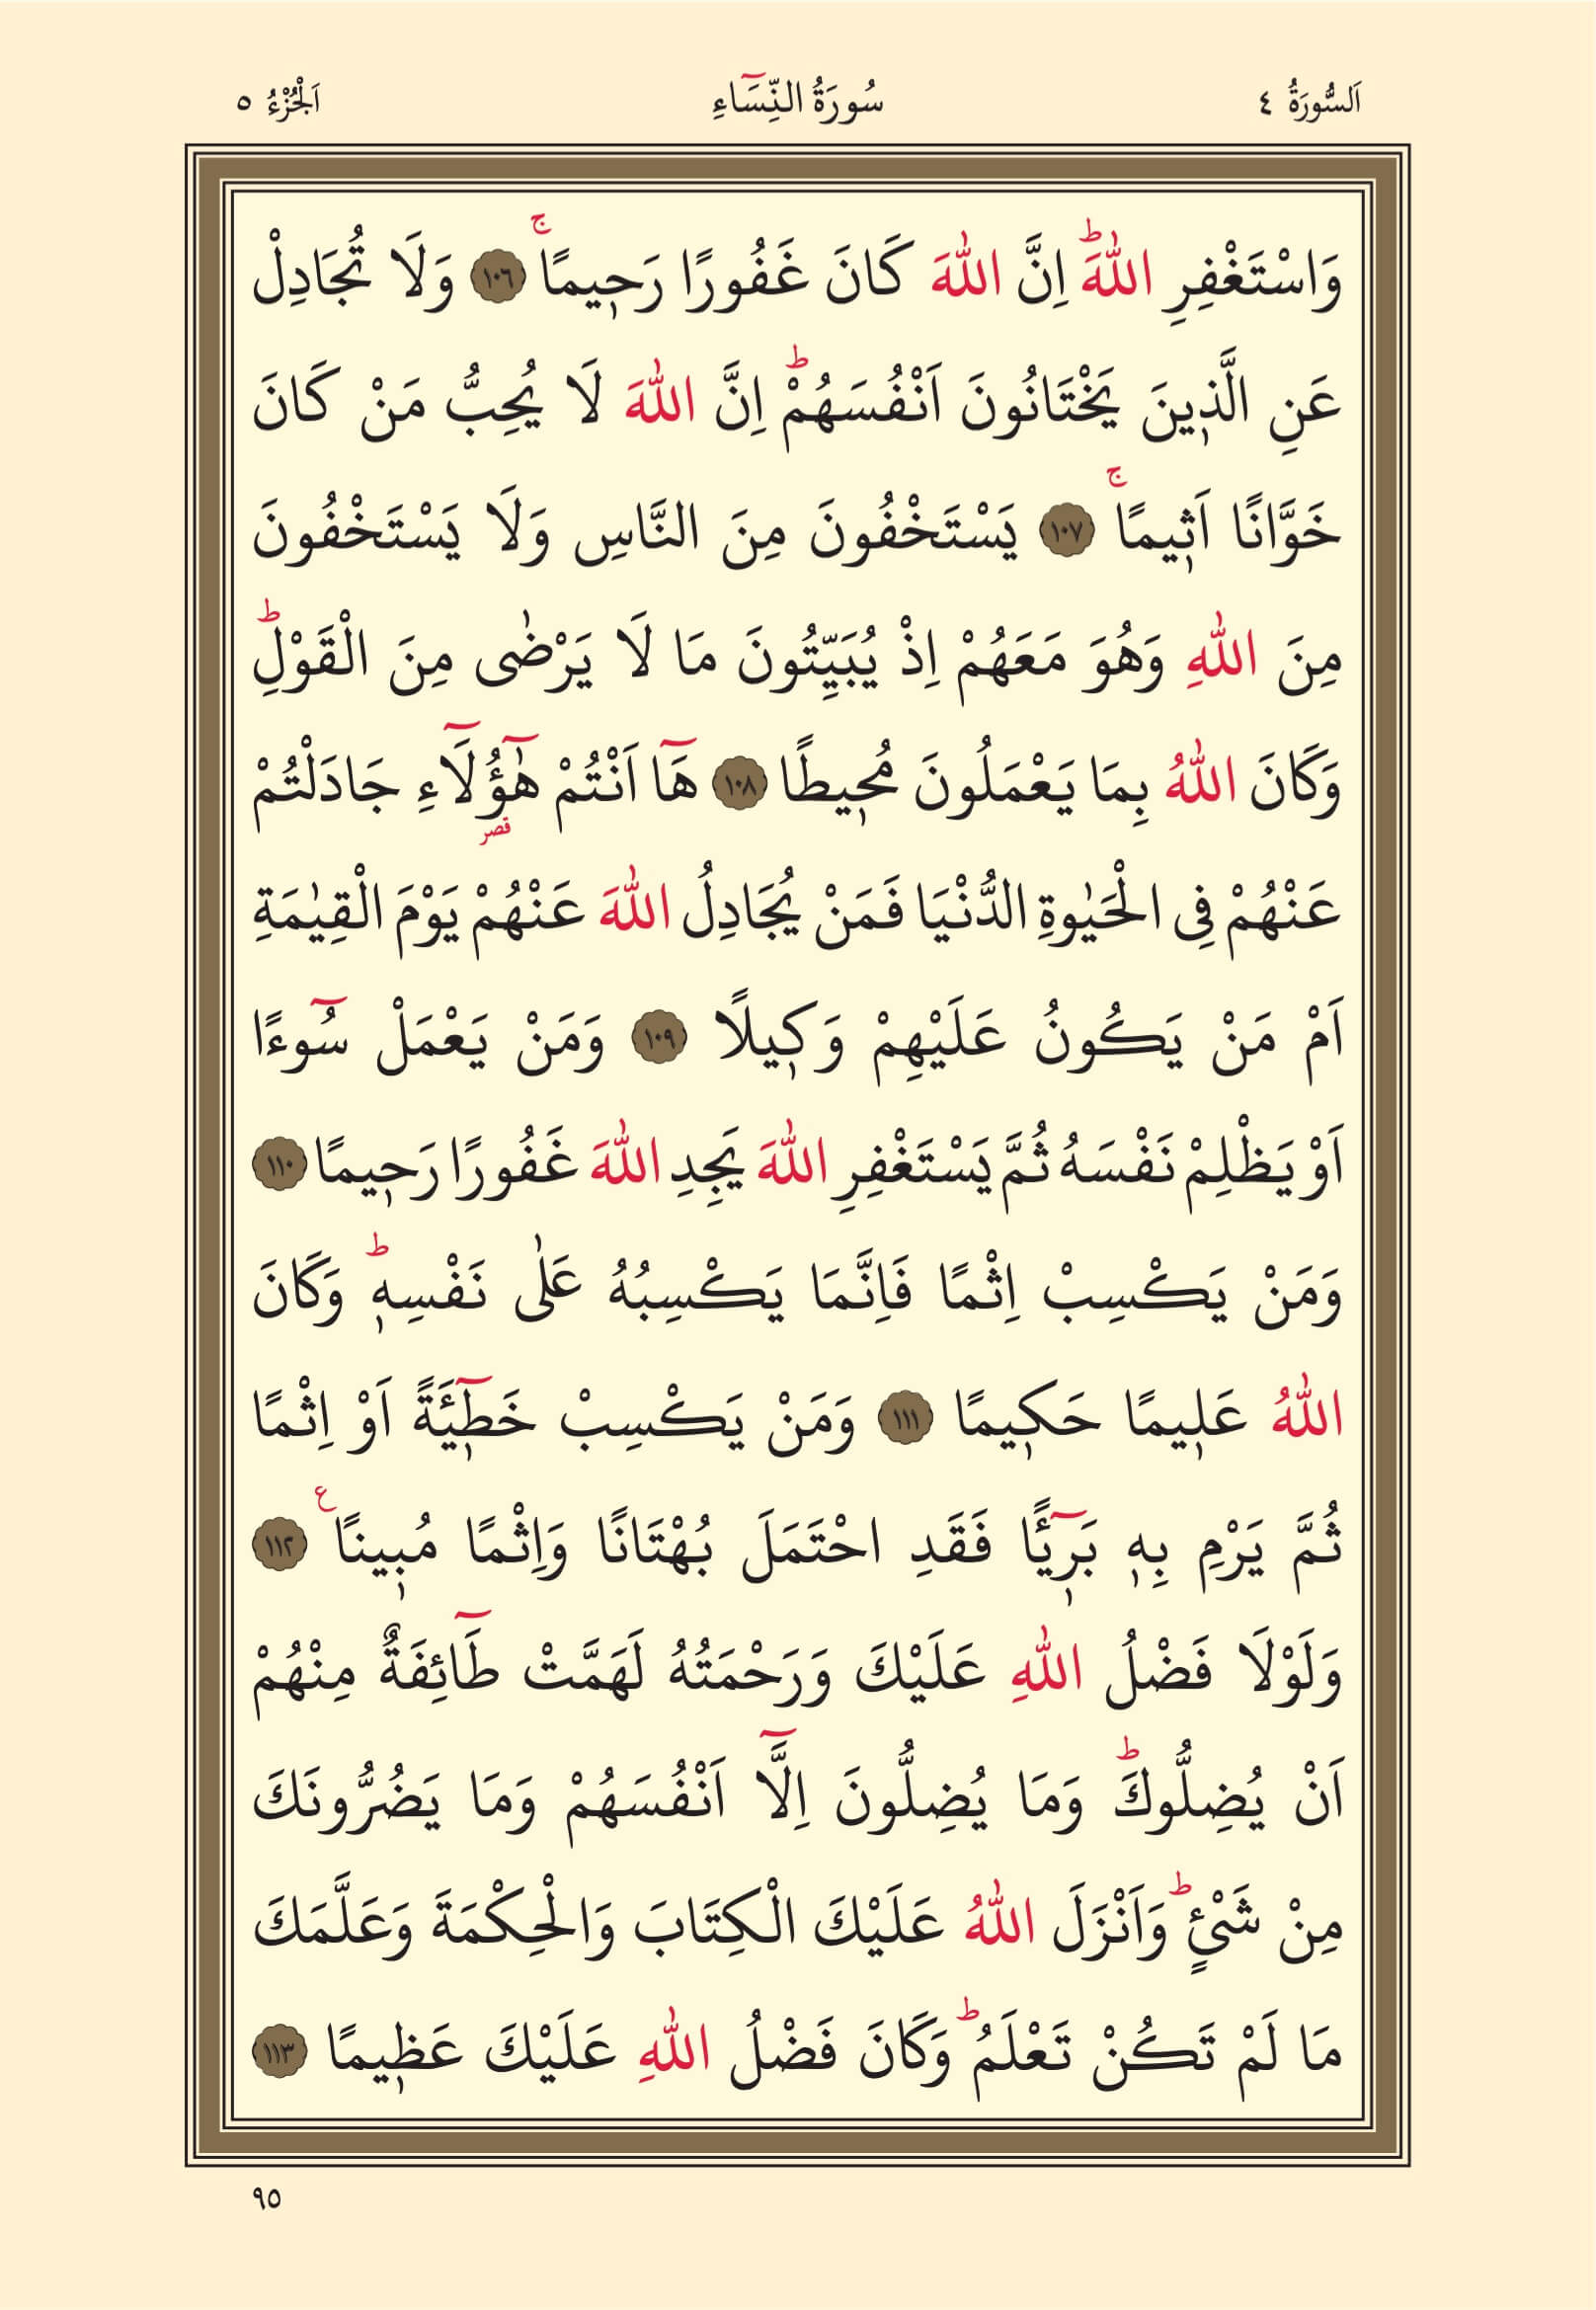 اَلسُّورَةُ ٤ سُورَةُ النِّسَٓاءِ اَلْجُزْءُ ٥
وَاسْتَغْفِرِ اللّٰهَؕ اِنَّ اللّٰهَ كَانَ غَفُورًا رَح۪يمًاۚ ١٠٦ وَلَا تُجَادِلْ
عَنِ الَّذ۪ينَ يَخْتَانُونَ اَنْفُسَهُمْؕ اِنَّ اللّٰهَ لَا يُحِبُّ مَنْ كَانَ
خَوَّانًا اَث۪يمًاۚ ١٠٧ يَسْتَخْفُونَ مِنَ النَّاسِ وَلَا يَسْتَخْفُونَ
مِنَ اللّٰهِ وَهُوَ مَعَهُمْ اِذْ يُبَيِّتُونَ مَا لَا يَرْضٰى مِنَ الْقَوْلِؕ
وَكَانَ اللّٰهُ بِمَا يَعْمَلُونَ مُح۪يطًا ١٠٨ هَٓا اَنْتُمْ هٰٓؤُ۬لَٓاءِ جَادَلْتُمْ
قصر
عَنْهُمْ فِى الْحَيٰوةِ الدُّنْيَا فَمَنْ يُجَادِلُ اللّٰهَ عَنْهُمْ يَوْمَ الْقِيٰمَةِ
اَمْ مَنْ يَكُونُ عَلَيْهِمْ وَك۪يلًا ١٠٩ وَمَنْ يَعْمَلْ سُٓوءًا
اَوْ يَظْلِمْ نَفْسَهُ ثُمَّ يَسْتَغْفِرِ اللّٰهَ يَجِدِ اللّٰهَ غَفُورًا رَح۪يمًا ١١٠
وَمَنْ يَكْسِبْ اِثْمًا فَاِنَّمَا يَكْسِبُهُ عَلٰى نَفْسِه۪ؕ وَكَانَ
اللّٰهُ عَل۪يمًا حَك۪يمًا ١١١ وَمَنْ يَكْسِبْ خَط۪ٓيئَةً اَوْ اِثْمًا
ثُمَّ يَرْمِ بِه۪ بَر۪ٓيـًٔا فَقَدِ احْتَمَلَ بُهْتَانًا وَاِثْمًا مُب۪ينًا ع ١١٢
وَلَوْلَا فَضْلُ اللّٰهِ عَلَيْكَ وَرَحْمَتُهُ لَهَمَّتْ طَٓائِفَةٌ مِنْهُمْ
اَنْ يُضِلُّوكَؕ وَمَا يُضِلُّونَ اِلَّٓا اَنْفُسَهُمْ وَمَا يَضُرُّونَكَ
مِنْ شَيْءٍؕ وَاَنْزَلَ اللّٰهُ عَلَيْكَ الْكِتَابَ وَالْحِكْمَةَ وَعَلَّمَكَ
مَا لَمْ تَكُنْ تَعْلَمُؕ وَكَانَ فَضْلُ اللّٰهِ عَلَيْكَ عَظ۪يمًا ١١٣
٩٥